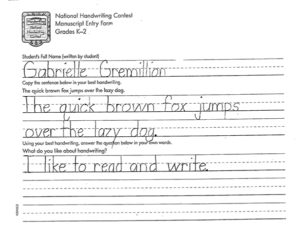 National Handwriting Contest
Manuscript Entry Form
Grades K–2
National
Handwriting
Contest
Student's Full Name (written by student)
Gabrielle Gremillion
Copy the sentence below in your best handwriting.
The quick brown fox jumps over the lazy dog.
The quick brown fox jumps
over the lazy dog.
Using your best handwriting, answer the question below in your own words.
What do you like about handwriting?
I like to read and write.